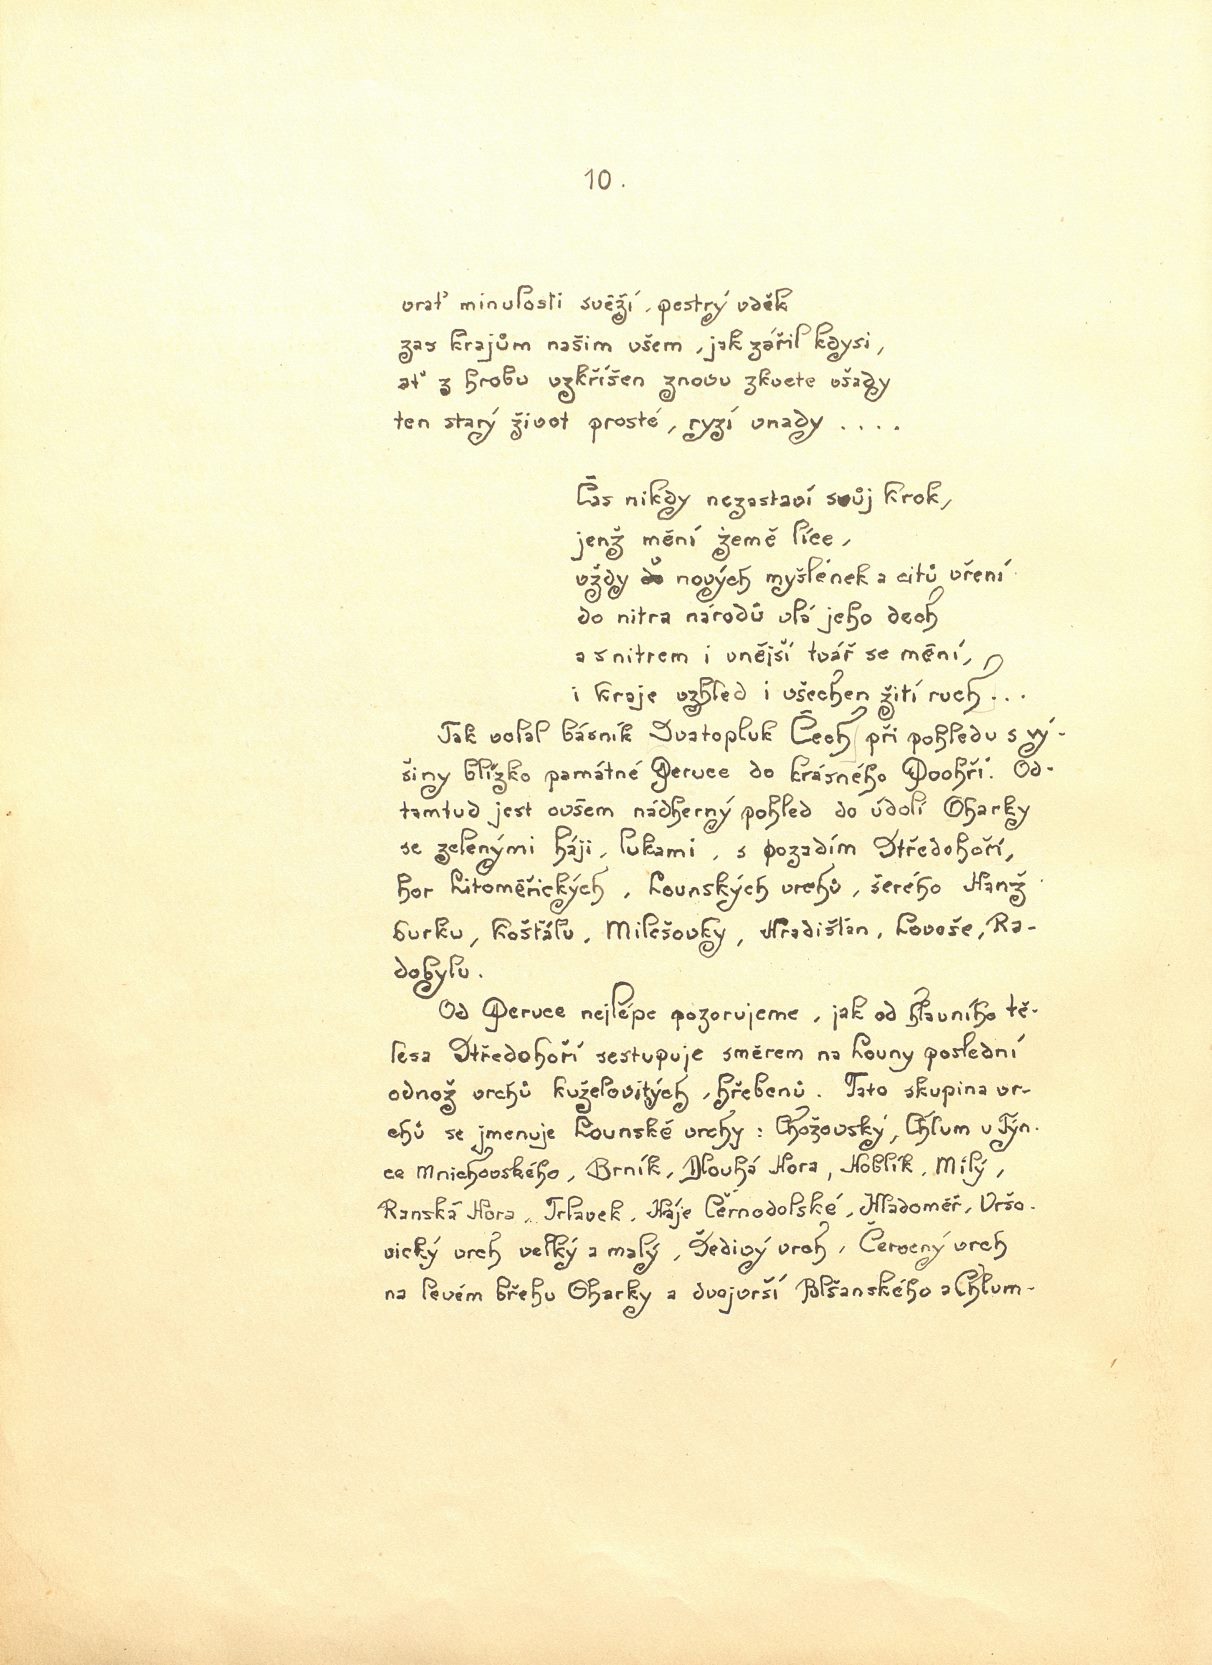 10.
vrať minulosti svěží, pestrý vděk
zas krajům našim všem, jak zářil kdysi,
ať z hrobu vzkříšen znovu zkvete všady
ten starý život prosté, ryzí vnady ....
Čas nikdy nezastaví svůj krok,
jenž mění země líce,
vždy do nových myšlének a citů vření
do nitra národů vlá jeho dech
a s nitrem i vnější tvář se mění,
i kraje vzhled i všechen žití ruch...
Tak volal básník Svatopluk Čech při pohledu s vý-
šiny blízko památné Peruce do krásného Poohří. Od-
tamtud jest ovšem nádherný pohled do údolí Oharky
se zelenými háji, lukami, s pozadím Středohoří,
hor Litoměřických, Lounských vrchů, šerého Hanž-
burku, Košťálu, Milešovky, Hradišťan, Lovoše, Ra-
dobylu.
Od Peruce nejlépe pozorujeme, jak od hlavního tě-
lesa Středohoří sestupuje směrem na Louny poslední
odnož vrchů kuželovitých, hřebenů. Tato skupina vr-
chů se jmenuje Lounské vrchy: Chožovský, Chlum u Týn-
ce Mnichovského, Brník, Dlouhá Hora, Hoblík, Milý,
Ranská Hora, Trlavek, Háje Černodolské, Hladoměř, Vršo-
vický vrch velký a malý, Šedivý vrch, Červený vrch
na levém břehu Oharky a dvojvrší Blšanského a Chlum-